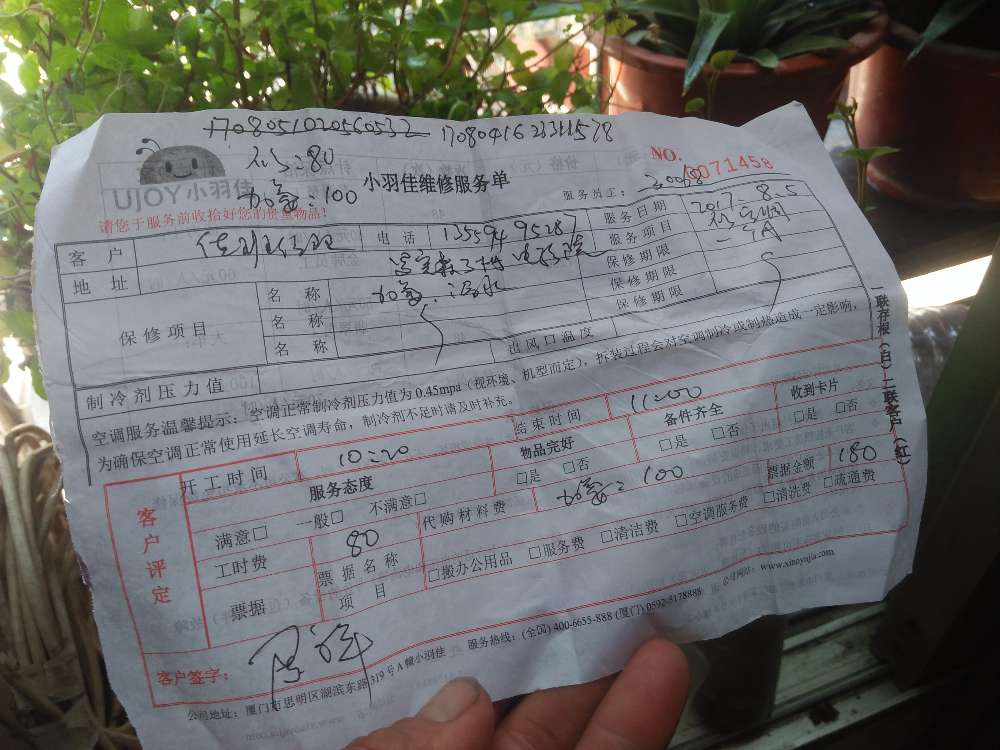 170805102056053⁠2 170804162331⁠1578
:80
UJOY小羽佳
加氟:100
小羽佳维修服务单
NO. 0071458
请您于服务前收拾好您的贵重物品!
服务员工: 30068
客 户
电 话
服务日期 2017-8.5
地 址
服务项目
保修项目
名 称 加氟、漏水
保修期限
名 称
保修期限
名 称
保修期限
制冷剂压力值
出风口温度
空调服务温馨提示:空调正常制冷剂压力值为0.45mpa(视环境、机型而定),拆装过程会对空调制冷或制热造成一定影响,
为确保空调正常使用延长空调寿命,制冷剂不足时请及时补充。
一联存根(白)二联客户(红)
客户评定
开工时间 10:20
结束时间 11:00
服务态度
物品完好
备件齐全
收到卡片
满意□ 一般□ 不满意□
□是 □否
□是 □否
□是 □否
工时费 80
代购材料费 加氟:100
票据金额 180
票据
票据名称
□搬办公用品 □服务费 □清洁费 □空调服务费 □清洗费 □疏通费
项 目
客户签字:
公司地址:厦门市思明区湖滨东路319号A幢小羽佳 服务热线:(全国) 400-6655-888 (厦门) 0592-5178888 公司网站:www.xiaoyujia.com